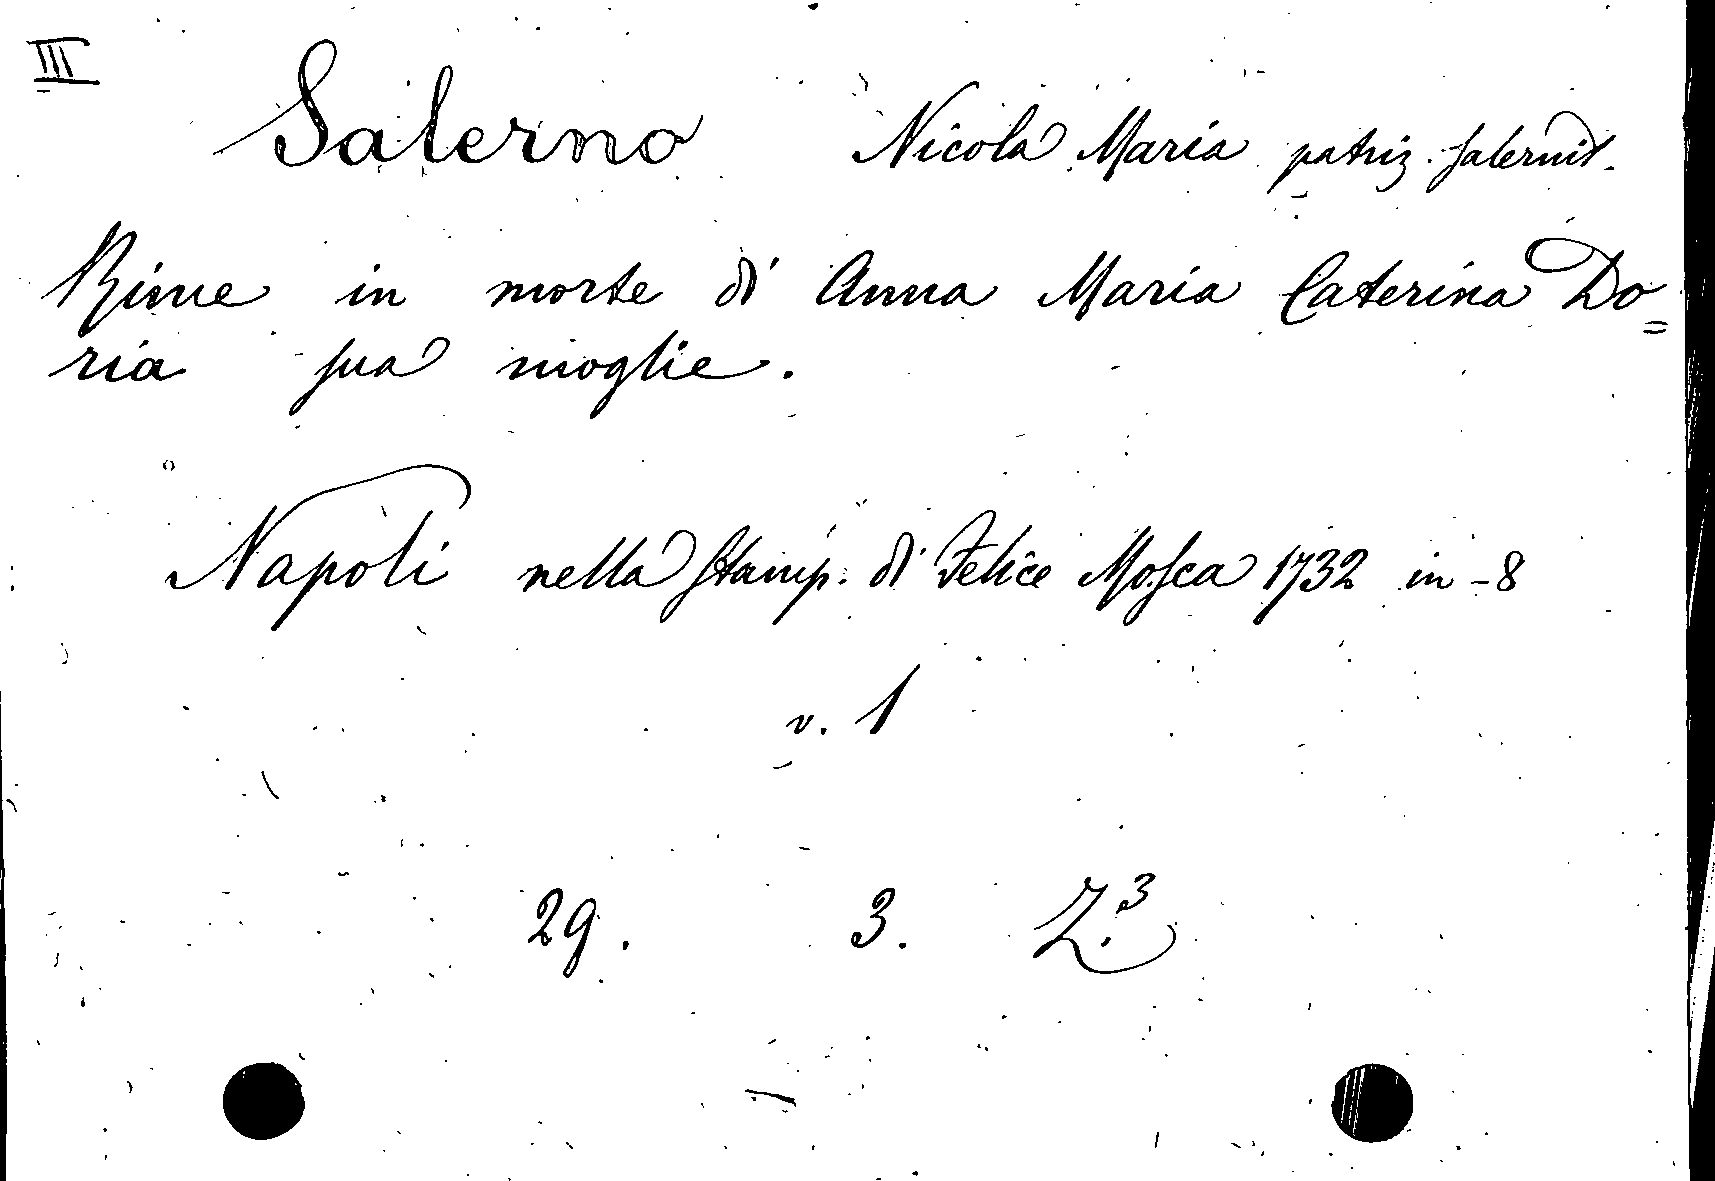 III
Salerno Nicola Maria patriz. salernit.
Rime in morte di Anna Maria Caterina Do=
ria sua moglie.
Napoli nella Stamp. di Felice Mosca 1732 in-8
v. 1
29. 3. Z.3